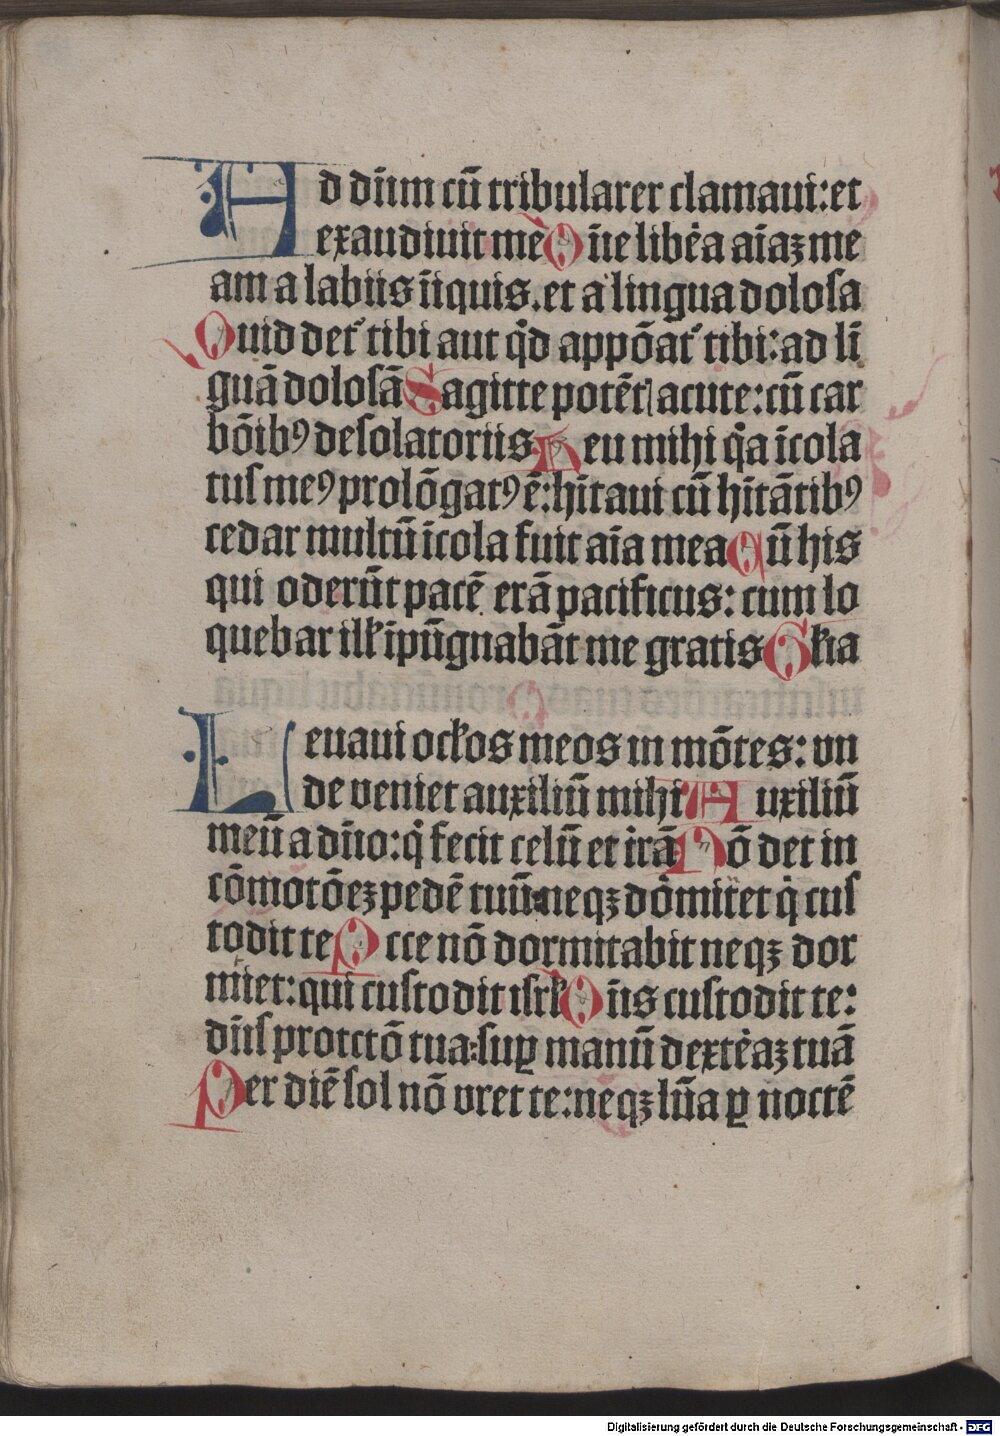 Ad dn̄m cū tribularer clamaui: et
exaudiuit me Dn̄e libėa aīaꝫ me
am a labiis īiquis. et a lingua dolosa
Quid det᷑ tibi aut qͥd appōat᷑ tibi: ad lī
guā dolosā Sagitte potēt̄ acute: cū car
bōibꝰ desolatoriis Heu mihi qͥa īcola
tus meꝰ prolōgatꝰ ē: hītaui cū hītātibꝰ
cedar multū īcola fuit aīa mea Cū his
qui oderūt pacē erā pacificus: cum lo
quebar illꝭ īpūgnabāt me gratis Gl̄ia
Leuaui ocl̄os meos in mōtes: vn
de veniet auxiliū mihi Auxiliū
meū a dn̄o: qͥ fecit celū et t̄rā Nō det in
cōmotōeꝫ pedē tuū: neqꝫ dōmitet qͥ cus
todit te Ecce nō dormitabit neqꝫ dor
miet: qui custodit isrl̄ Dn̄s custodit te:
dn̄s protctō tua: suꝑ manū dextėaꝫ tuā
Per diē sol nō vret te: neqꝫ lūa ꝑ noctē
Digitalisierung gefördert durch die Deutsche Forschungsgemeinschaft - DFG